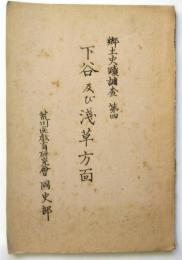 郷土史蹟調査 第四
下谷及び浅草方面
荒川区教育研究會 國史部